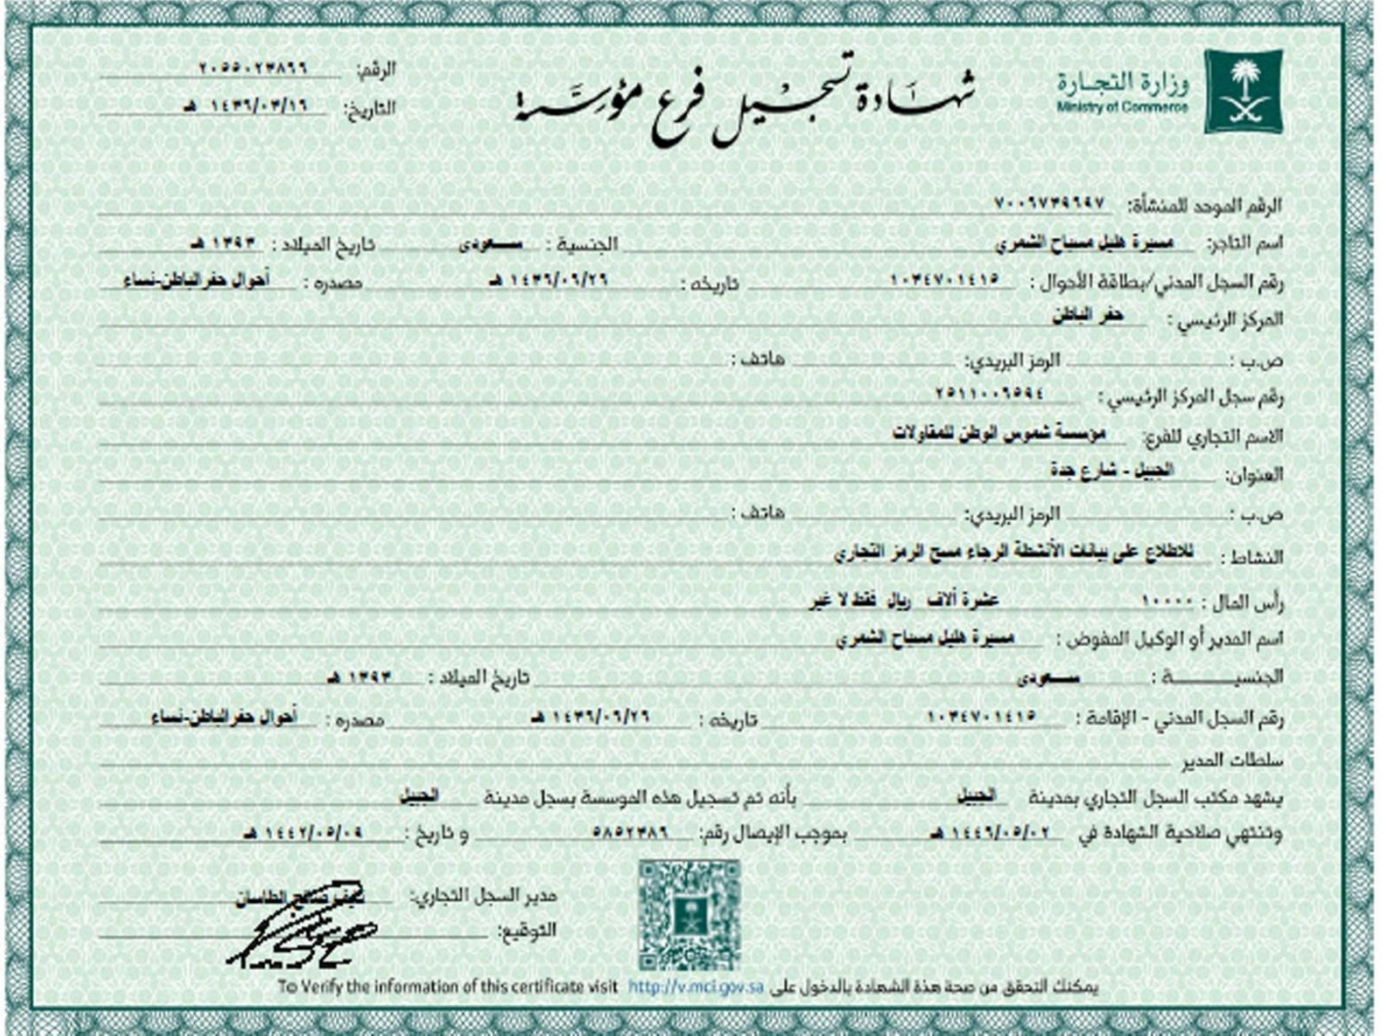 وزارة التجارة
Ministry of Commerce
شهادة تسجيل فرع مؤسسة
الرقم: ٢٠٥٥٠٢٣٨٦٦
التاريخ: ١٤٣٦/٠٣/١٦ هـ
الرقم الموحد للمنشأة: ٧٠٠٦٧٣٩٦٩٧
اسم التاجر: مسيرة هليل مسباح الشمري الجنسية : سعودى تاريخ الميلاد : ١٣٩٣ هـ
رقم السجل المدني/بطاقة الأحوال : ١٠٣٤٧٠١٤١٥ تاريخه : ١٤٣٦/٠٦/٢٦ هـ مصدره : أحوال حفر الباطن-نساء
المركز الرئيسي : حفر الباطن
ص.ب : الرمز البريدي: هاتف :
رقم سجل المركز الرئيسي : ٢٥١١٠٠٦٥٩٤
الاسم التجاري للفرع: مؤسسة شموس الوطن للمقاولات
العنوان: الجبيل - شارع جدة
ص.ب : الرمز البريدي: هاتف :
النشاط : للاطلاع على بيانات الأنشطة الرجاء مسح الرمز التجاري
رأس المال : ١٠٠٠٠ عشرة ألاف ريال فقط لا غير
اسم المدير أو الوكيل المفوض : مسيرة هليل مسباح الشمري
الجنسيـــــــة : سعودى تاريخ الميلاد : ١٣٩٣ هـ
رقم السجل المدني - الإقامة : ١٠٣٤٧٠١٤١٥ تاريخه : ١٤٣٦/٠٦/٢٦ هـ مصدره : أحوال حفر الباطن-نساء
سلطات المدير
يشهد مكتب السجل التجاري بمدينة الجبيل بأنه تم تسجيل هذه الموسسة بسجل مدينة الجبيل
وتنتهي صلاحية الشهادة في ١٤٤٦/٠٥/٠٢ هـ بموجب الإيصال رقم: ٥٨٥٢٣٨٦ و تاريخ : ١٤٤٢/٠٥/٠٩ هـ
مدير السجل التجاري: صالح الطاسان
التوقيع:
يمكنك التحقق من صحة هذة الشهادة بالدخول على http://v.mci.gov.sa To Verify the information of this certificate visit